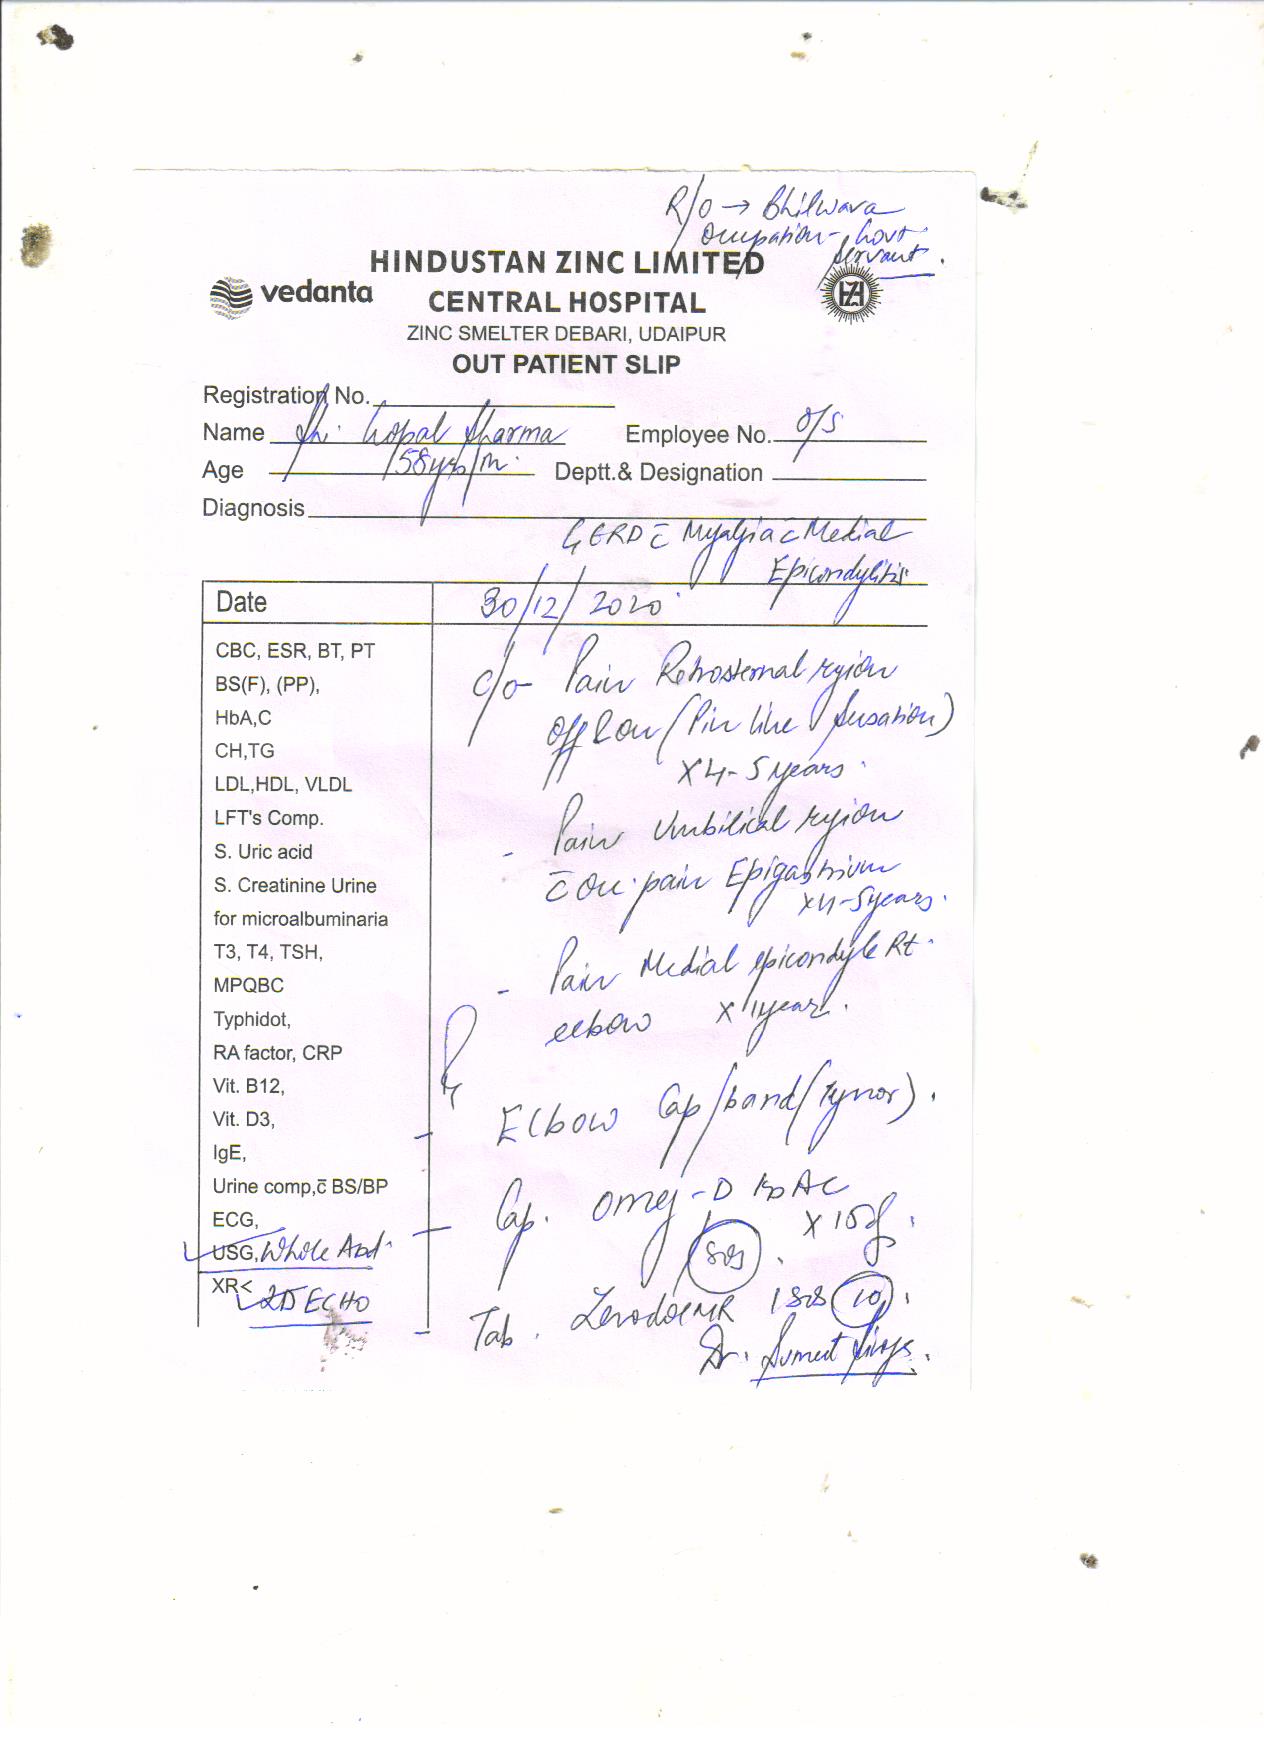 R/O → Bhilwara
Occupation - Govt
Servant.
HINDUSTAN ZINC LIMITED
vedanta
CENTRAL HOSPITAL
ZINC SMELTER DEBARI, UDAIPUR
OUT PATIENT SLIP
Registration No.
Name Sh. Gopal Sharma Employee No. O/S
Age 58yrs/M. Deptt.& Designation
Diagnosis
GERD c̄ Myalgia c̄ Medial
Epicondylitis
Date 30/12/2020
CBC, ESR, BT, PT
BS(F), (PP),
HbA,C
CH,TG
LDL,HDL, VLDL
LFT's Comp.
S. Uric acid
S. Creatinine Urine
for microalbuminaria
T3, T4, TSH,
MPQBC
Typhidot,
RA factor, CRP
Vit. B12,
Vit. D3,
IgE,
Urine comp,c̄ BS/BP
ECG,
USG, Whole Abd.
XR<
2D ECHO
c/o - Pain Retrosternal region
off & on (Pin like sensation)
x 4-5 years.
- Pain Umbilical region
c̄ occ. pain Epigastrium
x 4-5 years.
- Pain Medial epicondyle Rt.
elbow x 1 year.
- Elbow Cap/band/(Tynor).
- Cap. Omez-D AC
x 15d.
SOS
- Tab. 1 SOS 10.
Dr. Sumeet